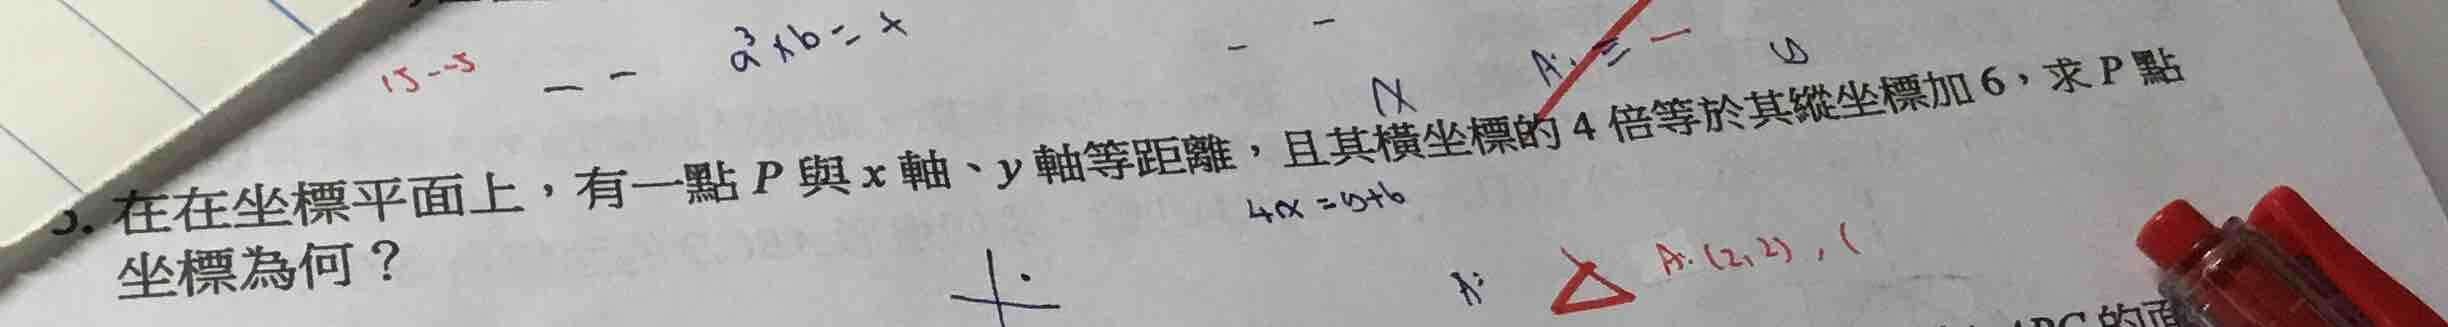 15--5
a³+b=x
x
A:
y
5. 在在坐標平面上，有一點 P 與 x 軸、y 軸等距離，且其橫坐標的 4 倍等於其縱坐標加 6，求 P 點
坐標為何？
4x=y+6
A:
A:(2,2),(
ABC 的面